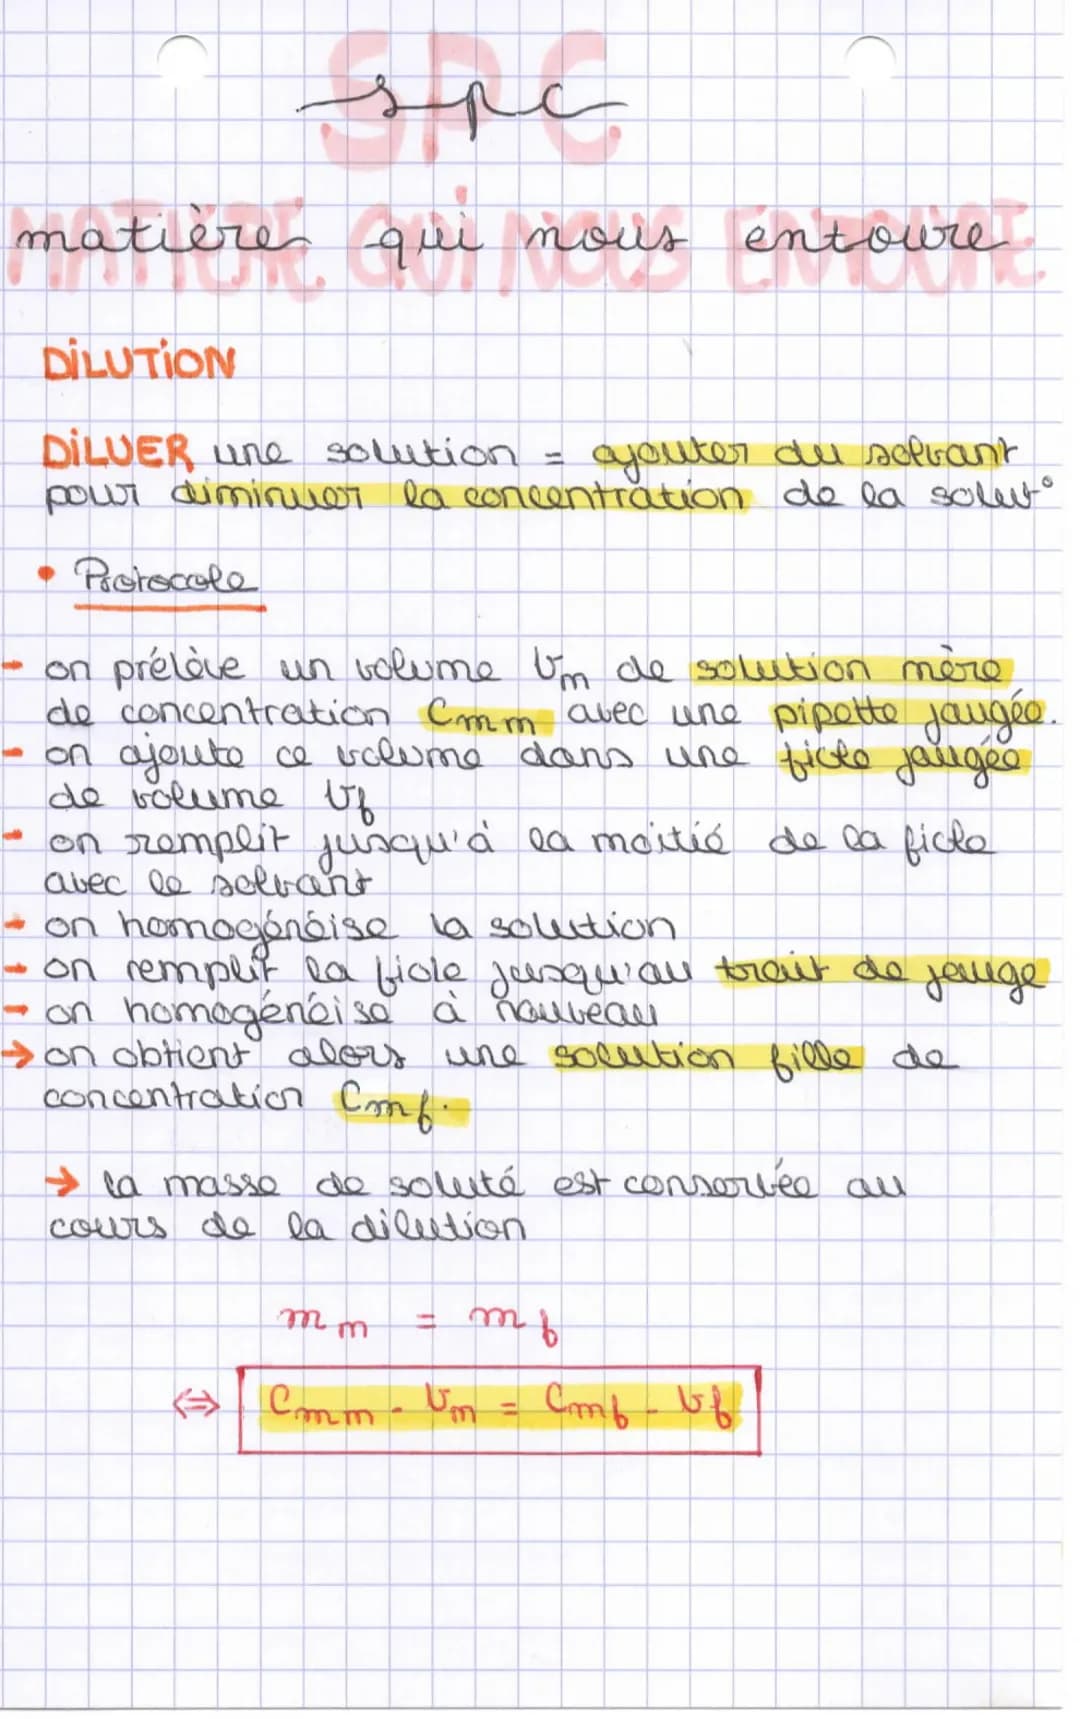 SPC
spc
MATIÈRE QUI NOUS ENTOURE
matière qui nous entoure
DILUTION
DILUER une solution = ajouter du solvant
pour diminuer la concentration de la solut°
• Protocole
- on prélève un volume Vm de solution mère
de concentration Cmm avec une pipette jaugée.
- on ajoute ce volume dans une fiole jaugée
de volume Vf
- on remplit jusqu'à la moitié de la fiole
avec le solvant
- on homogénéise la solution
- on remplit la fiole jusqu'au trait de jauge
- on homogénéise à nouveau
→ on obtient alors une solution fille de
concentration Cmf.
→ la masse de soluté est conservée au
cours de la dilution
mm = mf
⇔ Cmm . Vm = Cmf . Vf